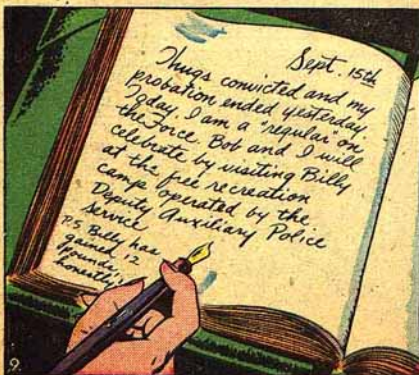 Sept. 15th
Thugs convicted and my
probation ended yesterday.
Today, I am a "regular" on
the Force. Bob and I will
celebrate by visiting Billy
at the free recreation
camp operated by the
Deputy Auxiliary Police
Service
P.S. Billy has
gained 12
pounds,
honestly!
9.